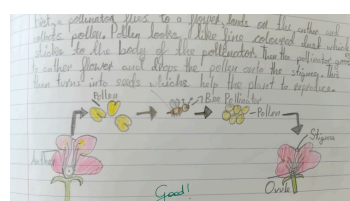 First, a pollinator flies to a flower, lands on the anther and
collects pollen. Pollen looks like fine coloured dust which
sticks to the body of the pollenator. Then the pollinator goes
to anther flower and drops the pollen onto the stigma. this
then turns into seeds which help the plant to reproduce.
Pollen
Bee Pollinator
Pollen
Stigma
Anther
Ovule
Good!